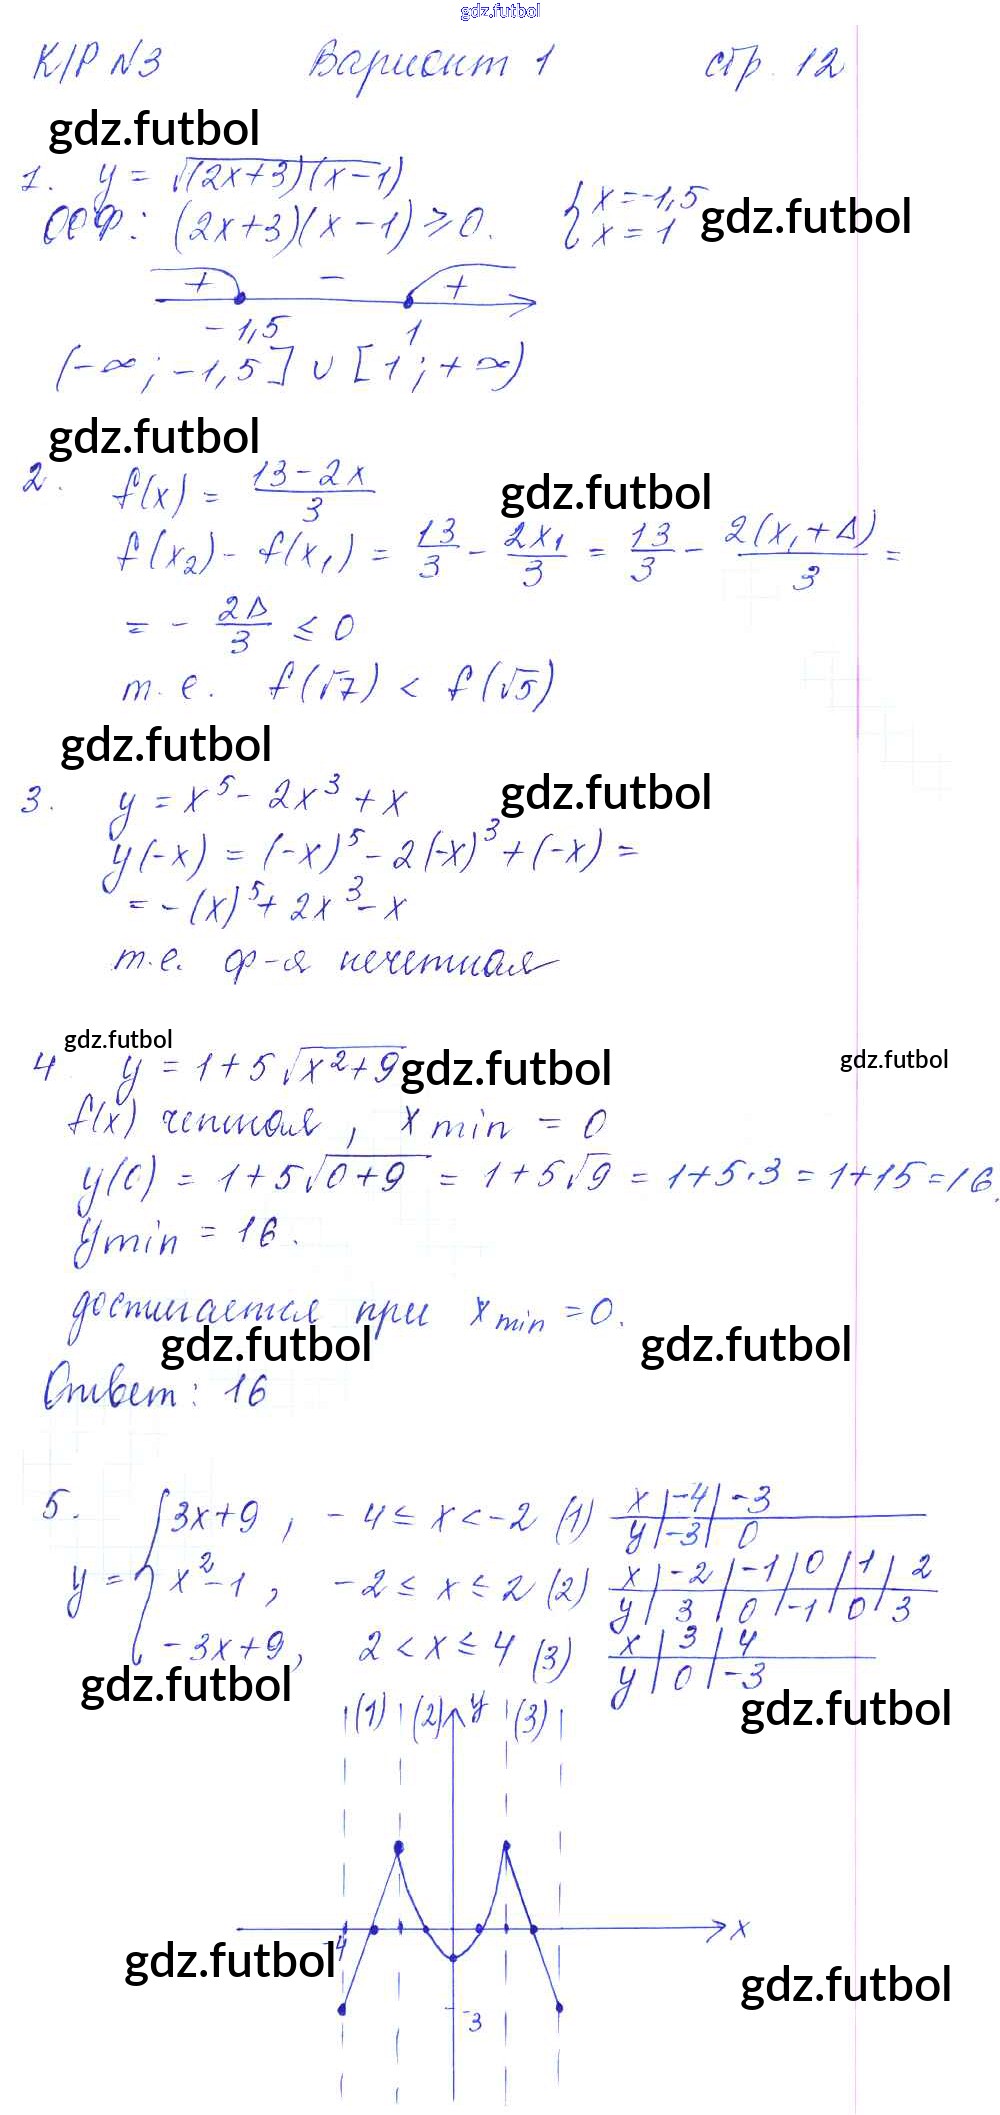 gdz.futbol
К/Р №3 Вариант 1 стр. 12
gdz.futbol
1. y = √(2x+3)(x-1)
ООФ: (2x+3)(x-1) ≥ 0. { x = -1,5
x = 1 gdz.futbol
+ - +
-1,5 1
(-∞; -1,5] ∪ [1; +∞)
gdz.futbol
2. f(x) = (13-2x)/3 gdz.futbol
f(x₂) - f(x₁) = 13/3 - 2x₁/3 = 13/3 - 2(x₁+Δ)/3 =
= - 2Δ/3 ≤ 0
т.е. f(√7) < f(√5)
gdz.futbol
3. y = x⁵ - 2x³ + x gdz.futbol
y(-x) = (-x)⁵ - 2(-x)³ + (-x) =
= -(x)⁵ + 2x³ - x
т.е. ф-я нечетная
gdz.futbol
4 y = 1 + 5√x²+9 gdz.futbol gdz.futbol
f(x) четная, x min = 0
y(0) = 1 + 5√0+9 = 1 + 5√9 = 1+5·3 = 1+15 = 16.
y min = 16.
достигается при x min = 0.
gdz.futbol gdz.futbol
Ответ: 16
5. y = { 3x+9, -4 ≤ x < -2 (1) x | -4 | -3
y | -3 | 0
x²-1, -2 ≤ x ≤ 2 (2) x | -2 | -1 | 0 | 1 | 2
y | 3 | 0 | -1 | 0 | 3
-3x+9, 2 < x ≤ 4 (3) x | 3 | 4
y | 0 | -3
gdz.futbol gdz.futbol
(1) (2) y (3)
-4 x
gdz.futbol gdz.futbol
-3